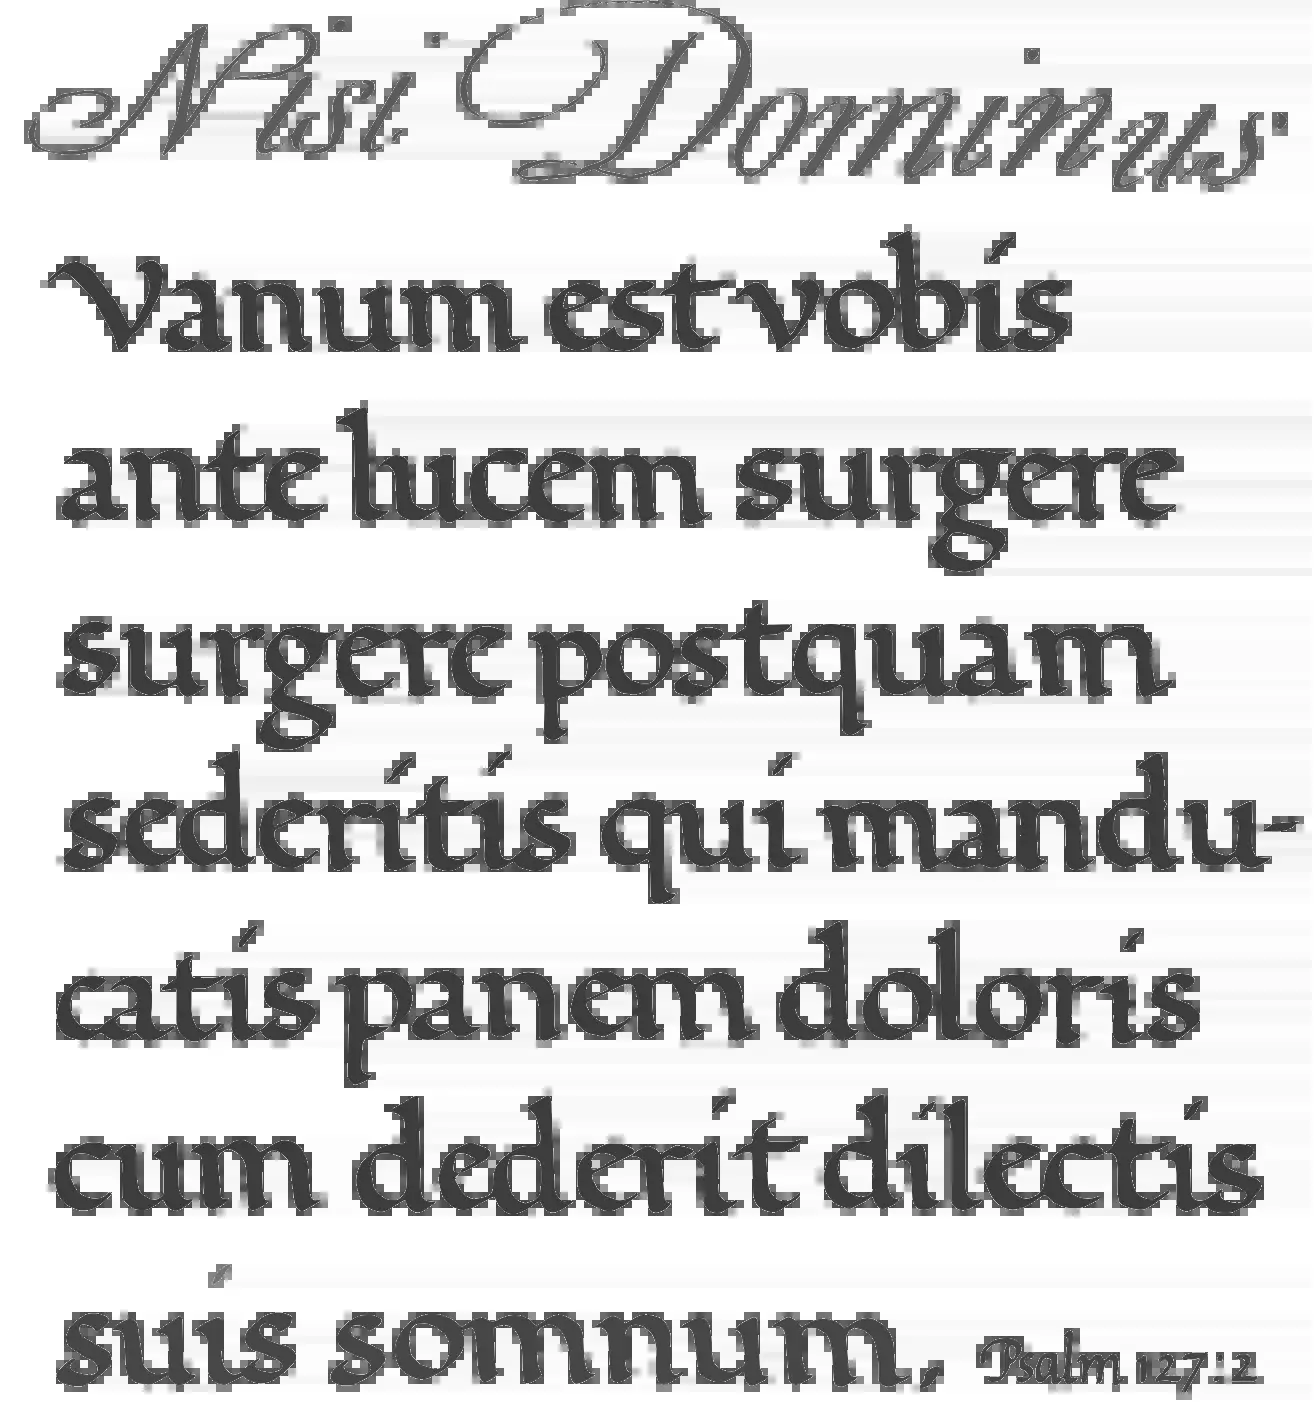 Nisi Dominus
Vanum est vobis
ante lucem surgere
surgere postquam
sederitis qui mandu-
catis panem doloris
cum dederit dilectis
suis somnum, Psalm 127:2